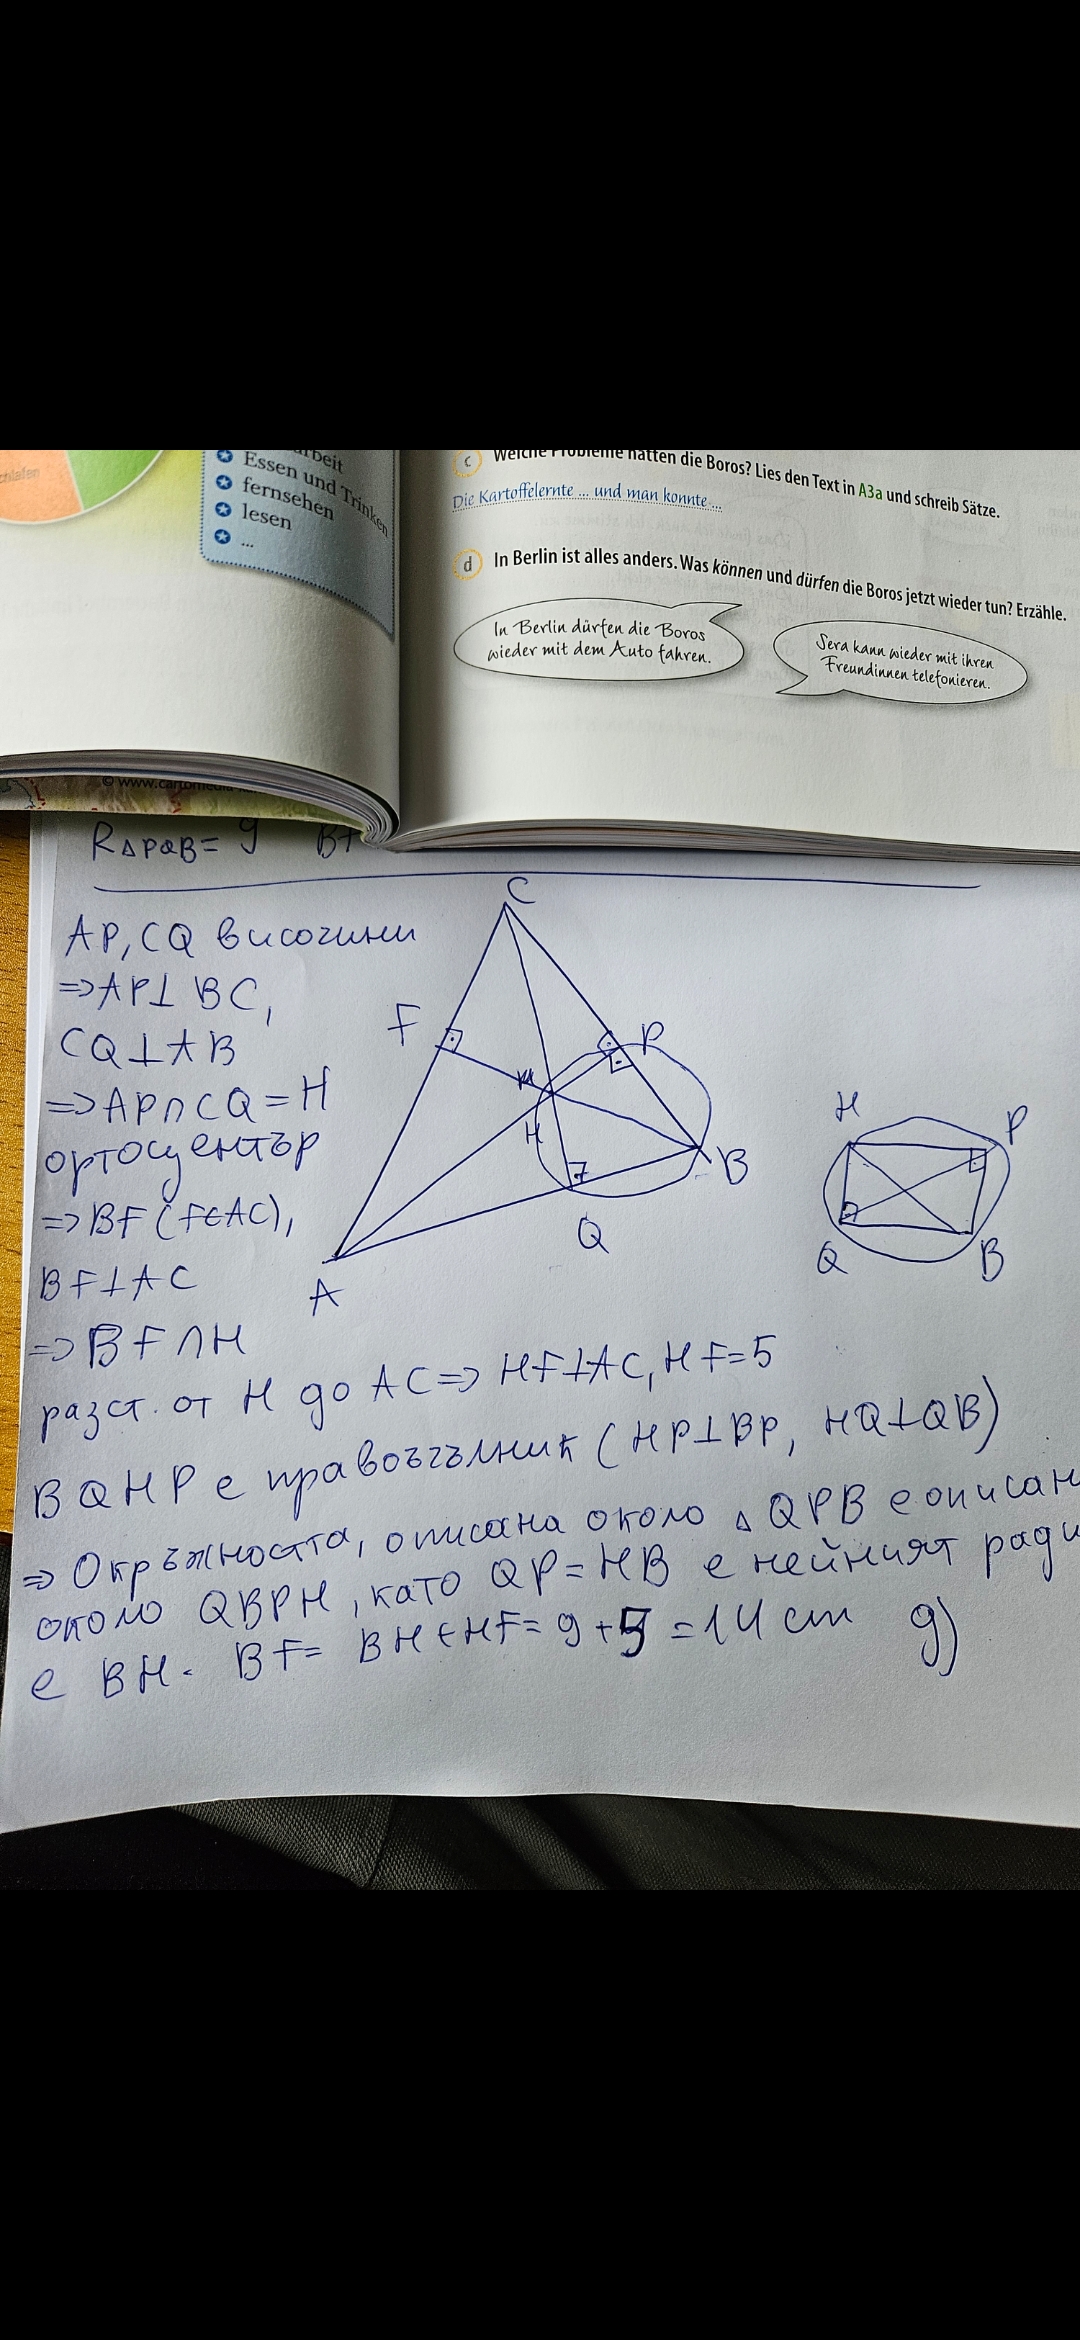 Essen und Trinken
fernsehen
lesen
...
c Welche Probleme hatten die Boros? Lies den Text in A3a und schreib Sätze.
Die Kartoffelernte ... und man konnte ...
d In Berlin ist alles anders. Was können und dürfen die Boros jetzt wieder tun? Erzähle.
In Berlin dürfen die Boros
wieder mit dem Auto fahren.
Sera kann wieder mit ihren
Freundinnen telefonieren.
R△PQB= 9
AP, CQ височини
=> AP⊥ BC,
CQ⊥AB
=> AP∩CQ = H
ортоцентър
=> BF (F∈AC),
BF⊥AC
=> BF∩H
разст. от H до AC => HF⊥AC, HF=5
BQHP е правоъгълник (HP⊥BP, HQ⊥QB)
=> Окръжността, описана около △ QPB е описан
около QBPH, като QP=HB е нейният ради
е BH. BF= BH+HF= 9+5 =14 cm
C
F
P
M
H
B
Q
A
H
P
Q
B